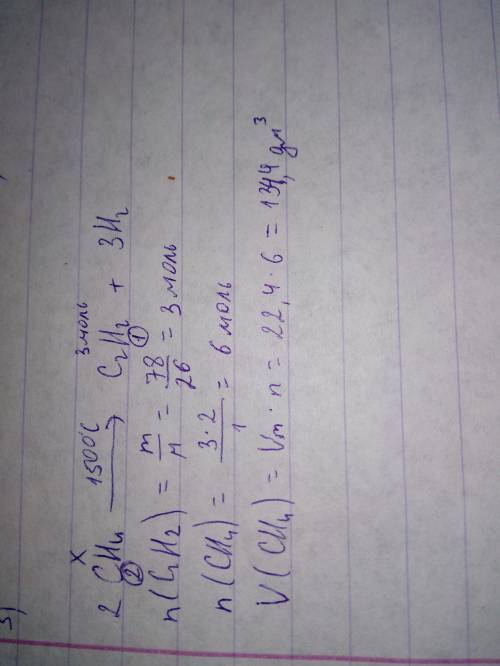 3)
x 3 моль
2CH₄ 1500°C → C₂H₂ + 3H₂
② ①
n(C₂H₂) = m/M = 78/26 = 3 моль
n(CH₄) = 3·2/1 = 6 моль
V(CH₄) = Vm · n = 22,4 · 6 = 134,4 дм³